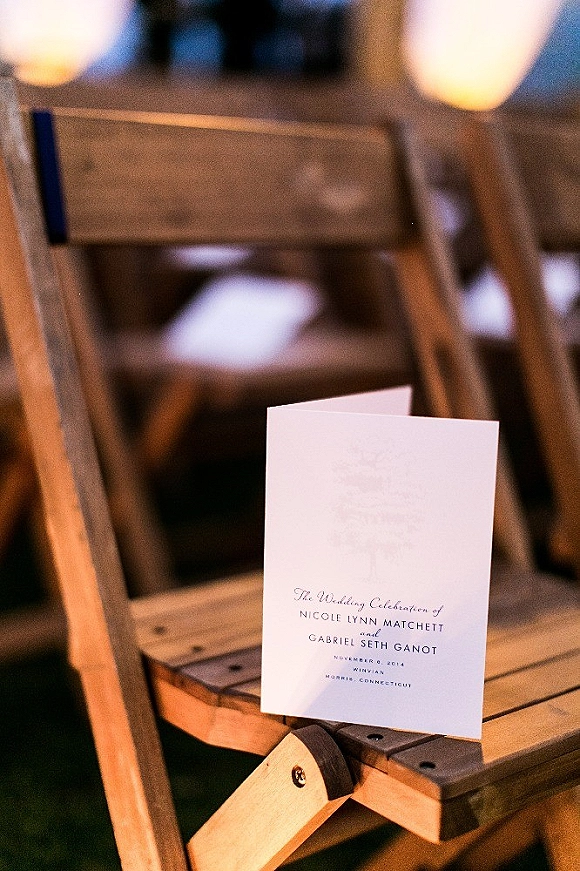 The Wedding Celebration of
NICOLE LYNN MATCHETT
and
GABRIEL SETH GANOT
NOVEMBER 8, 2014
WINVIAN
MORRIS, CONNECTICUT